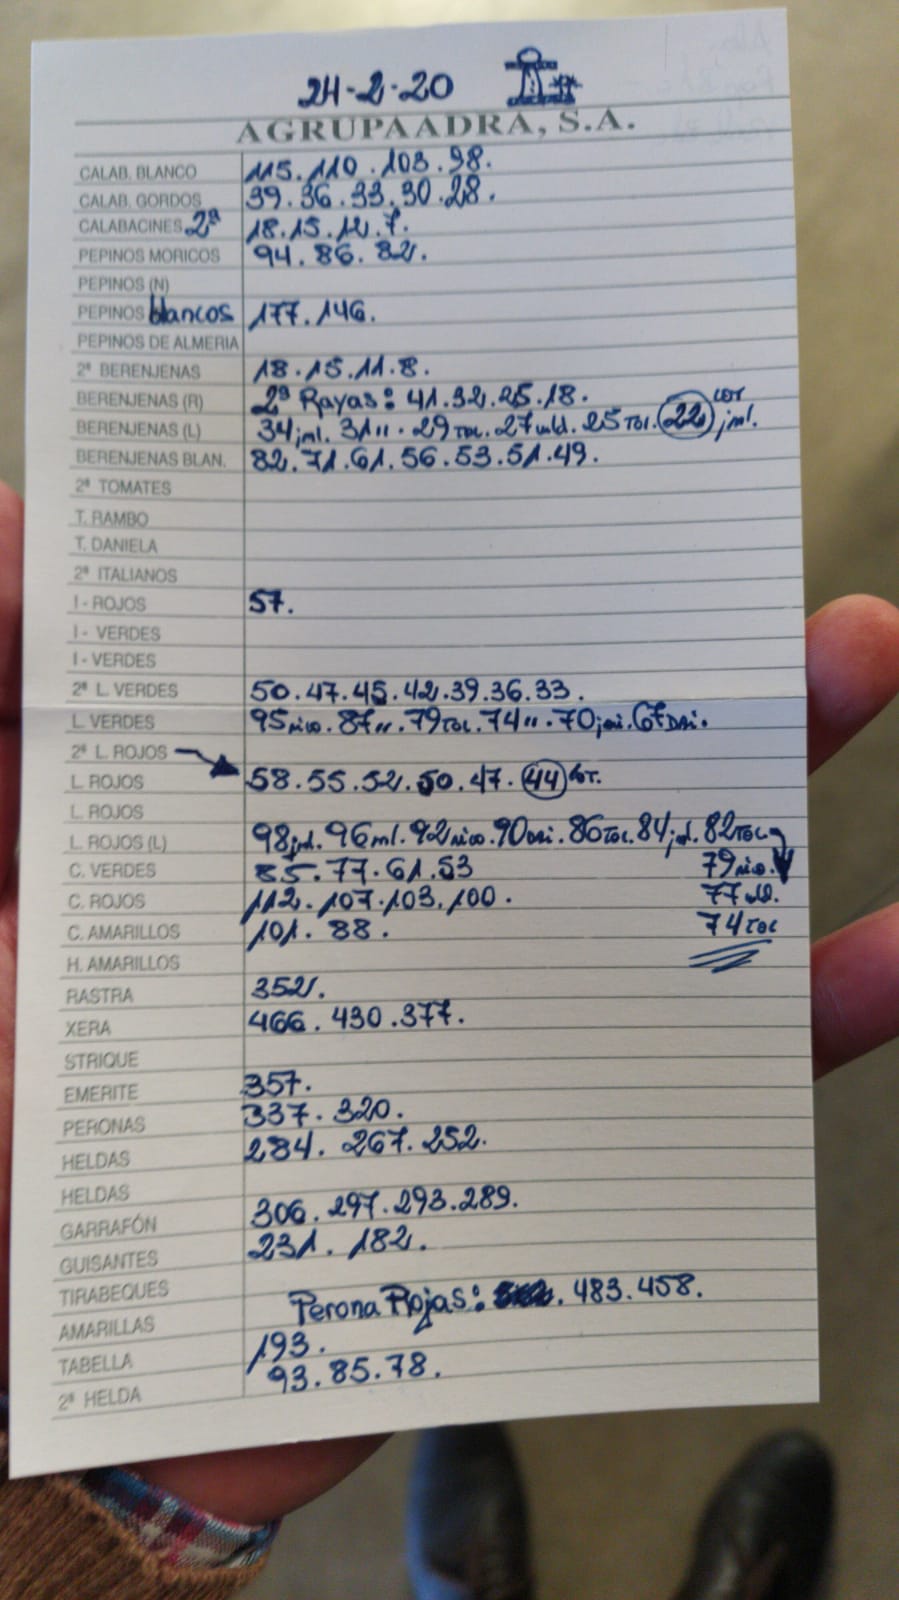 24-2-20
AGRUPAADRA, S.A.
CALAB. BLANCO 115.110.103.98.
CALAB. GORDOS 39.36.33.30.28.
CALABACINES 2ª 18.15.12.7.
PEPINOS MORICOS 94.86.82.
PEPINOS (N)
PEPINOS blancos 177.146.
PEPINOS DE ALMERIA
2ª BERENJENAS 18.15.11.8.
BERENJENAS (R) 2ª Rayas: 41.32.25.18.
BERENJENAS (L) 34 jml. 31 ". 29 TOL. 27 . 25 TOL. 22 jml.
BERENJENAS BLAN. 82.71.61.56.53.51.49.
2ª TOMATES
T. RAMBO
T. DANIELA
2ª ITALIANOS
I - ROJOS 57.
I - VERDES
I - VERDES
2ª L. VERDES 50.47.45.42.39.36.33.
L. VERDES 95 . 87 ". 79 TOL. 74 ". 70 . 67 .
2ª L. ROJOS
L. ROJOS 58.55.52.50.47.44
L. ROJOS
L. ROJOS (L) 98 . 96 ml. 92 . 90 . 86 TOL. 84 . 82 TOL
79
C. VERDES 85.77.61.53
77
C. ROJOS 112.107.103.100.
74 TOL
C. AMARILLOS 101.88.
H. AMARILLOS
RASTRA 352.
XERA 466.430.377.
STRIQUE
EMERITE 357.
PERONAS 337.320.
HELDAS 284.267.252.
HELDAS
GARRAFÓN 306.297.293.289.
GUISANTES 231.182.
TIRABEQUES
Perona Rojas: . 483.458.
AMARILLAS
TABELLA 193.
2ª HELDA 93.85.78.